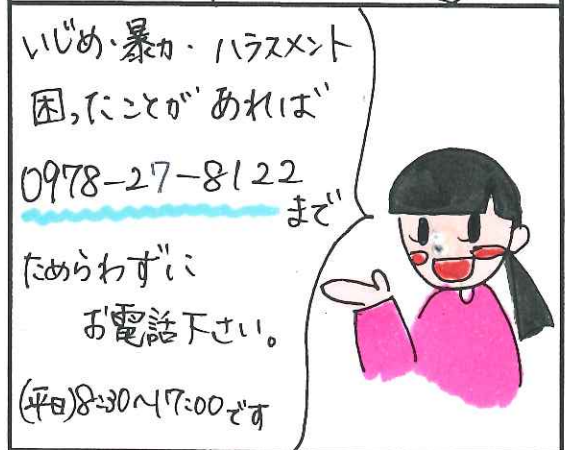 いじめ・暴力・ハラスメント
困ったことがあれば
0978-27-8122
まで
ためらわずに
お電話下さい。
(平日)8:30〜17:00です